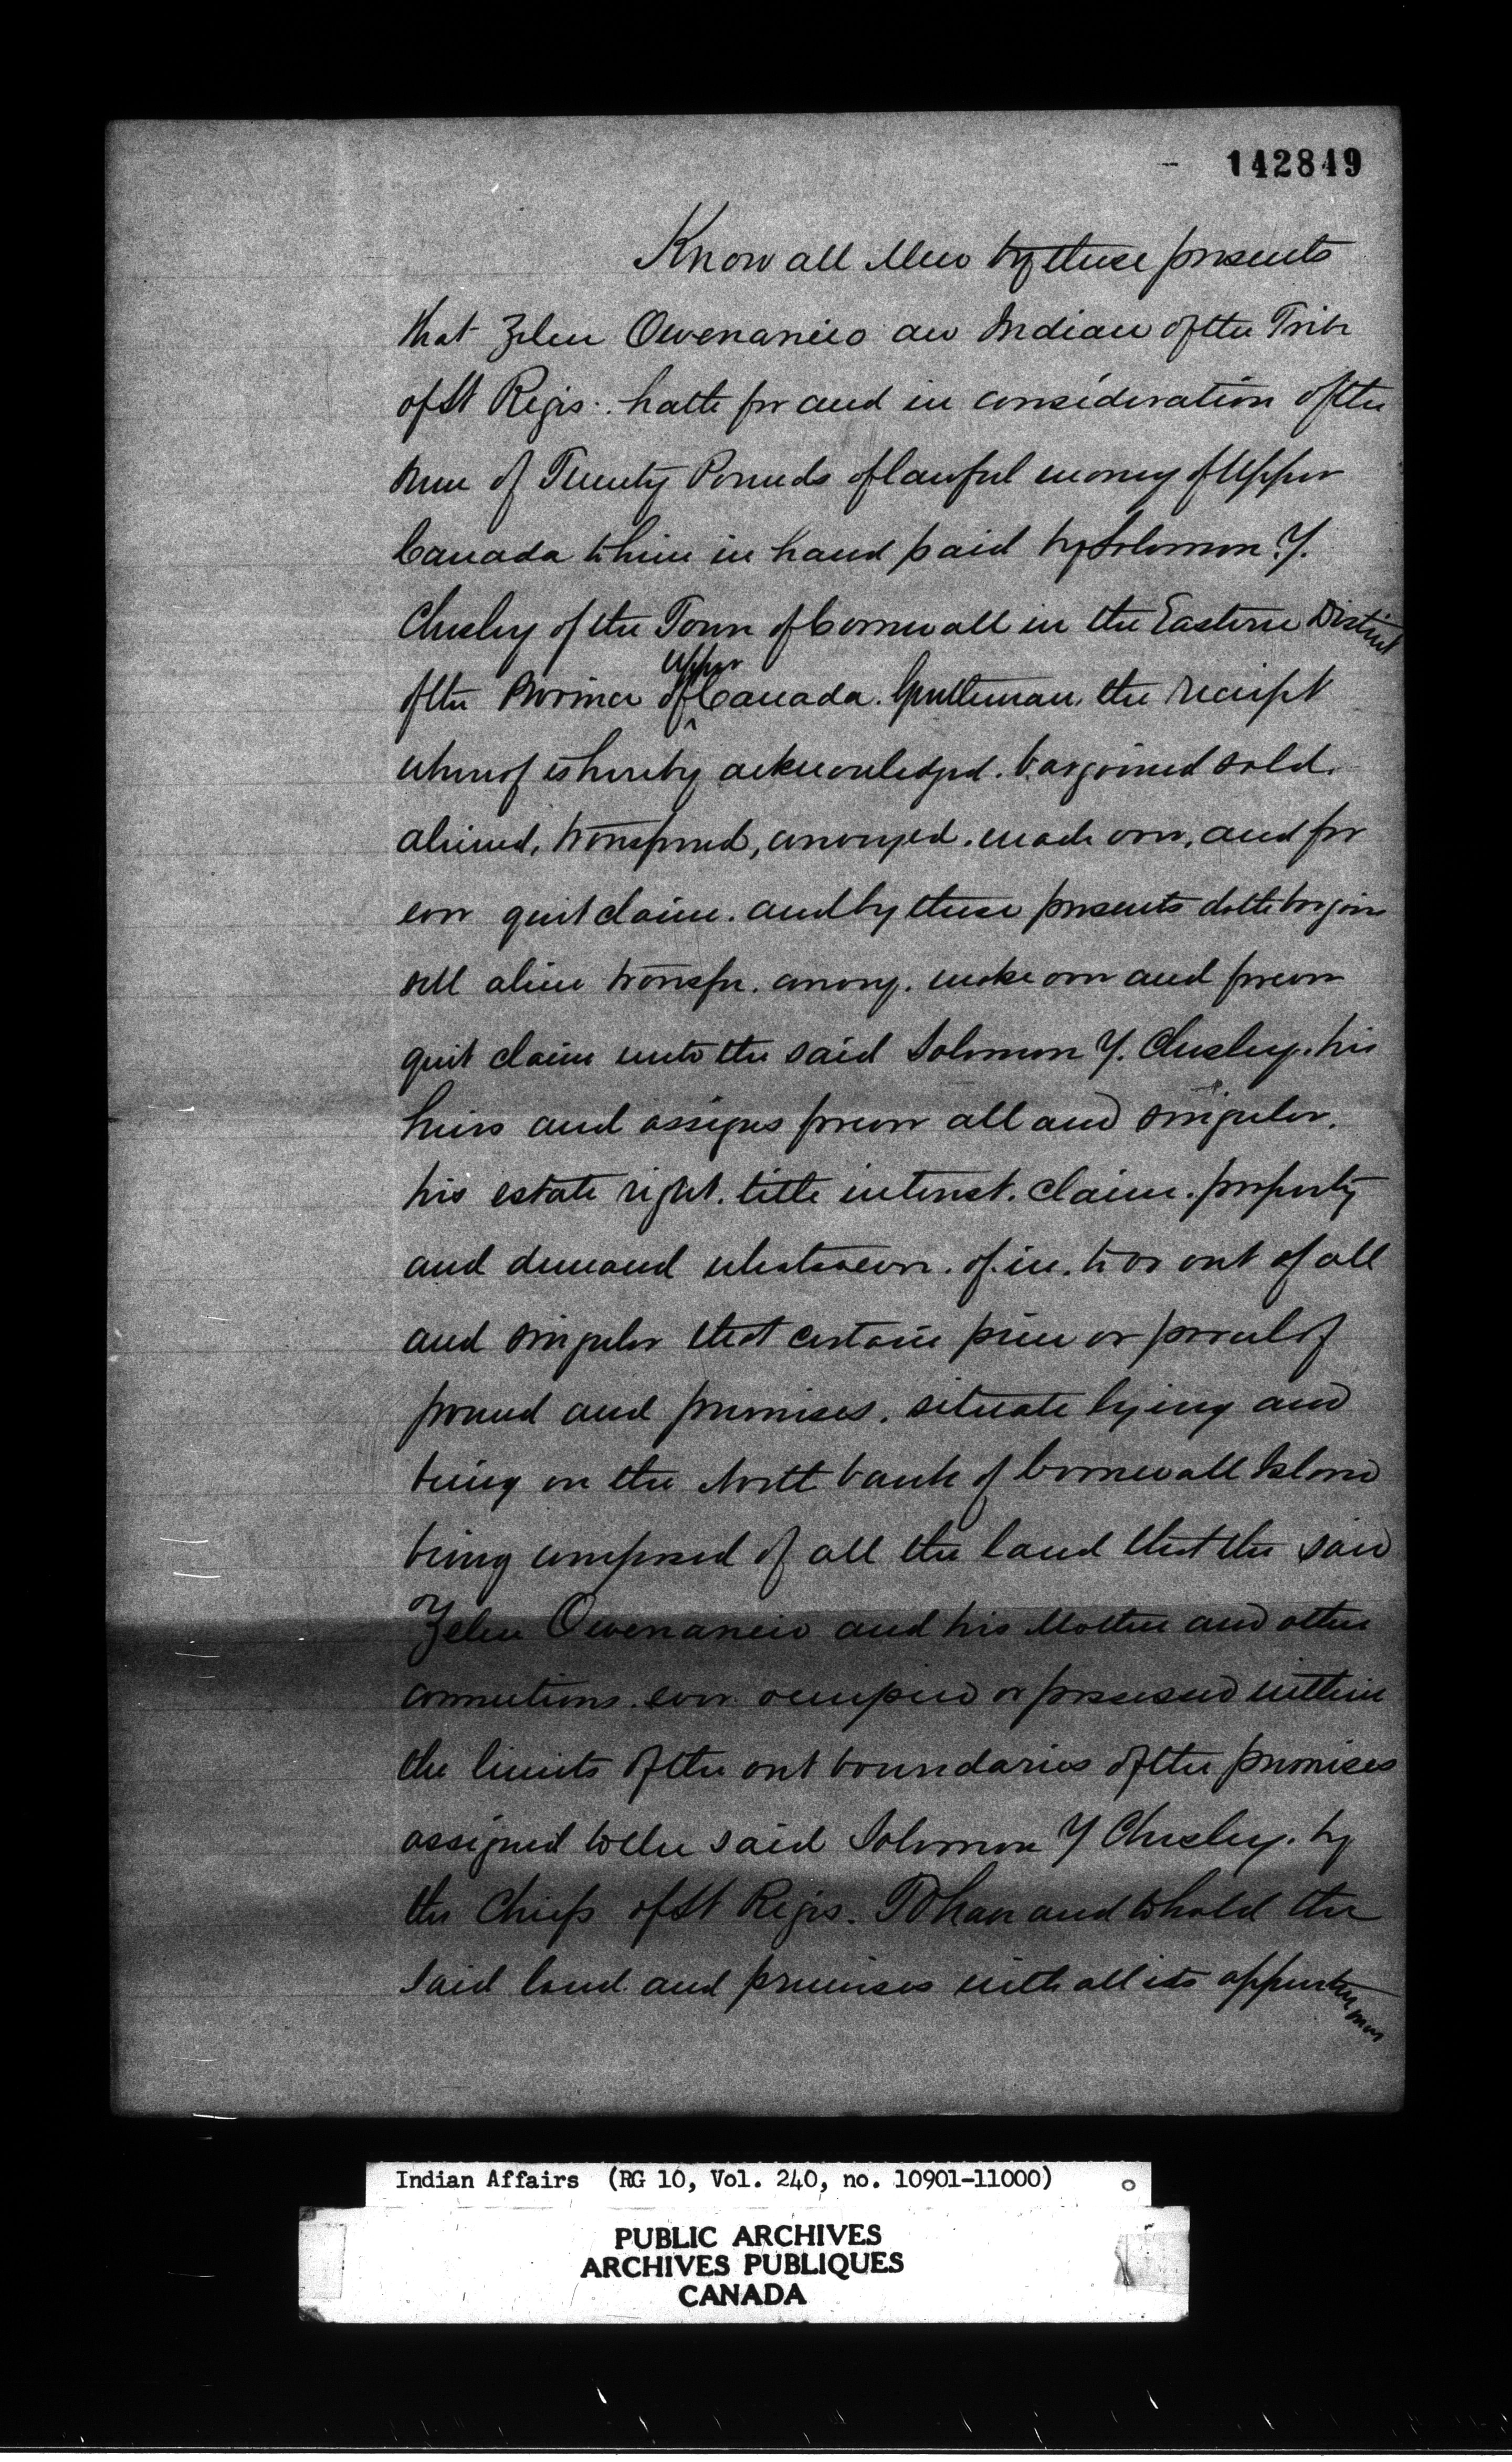 142849
Know all Men by these presents
that Zelen Owenaneio an Indian of the Tribe
of St Regis. hath for and in consideration of the
sum of Twenty Pounds of lawful money of Upper
Canada to him in hand paid by Solomon Y.
Chesley of the Town of Cornwall in the Eastern District
of the Province of Upper Canada. Gentleman, the receipt
whereof is hereby acknowledged. bargained sold.
aliened, transferred, conveyed. made over, and for
ever quit claim. and by these presents doth bargain
sell alien transfer. convey. make over and forever
quit claim unto the said Solomon Y. Chesley. his
heirs and assigns forever all and singular.
his estate right. title interest. claim. property
and demand whatsoever. of. in. to or out of all
and singular that certain piece or parcel of
ground and premises. situate lying and
being on the North bank of Cornwall Island
being composed of all the land that the said
Zelen Owenaneio and his Mother and other
connections. ever occupied or possessed within
the limits of the out boundaries of the premises
assigned to the said Solomon Y Chesley. by
the Chiefs of St Regis. To have and to hold the
said land. and premises with all its appurtenances
Indian Affairs (RG 10, Vol. 240, no. 10901-11000)
PUBLIC ARCHIVES
ARCHIVES PUBLIQUES
CANADA